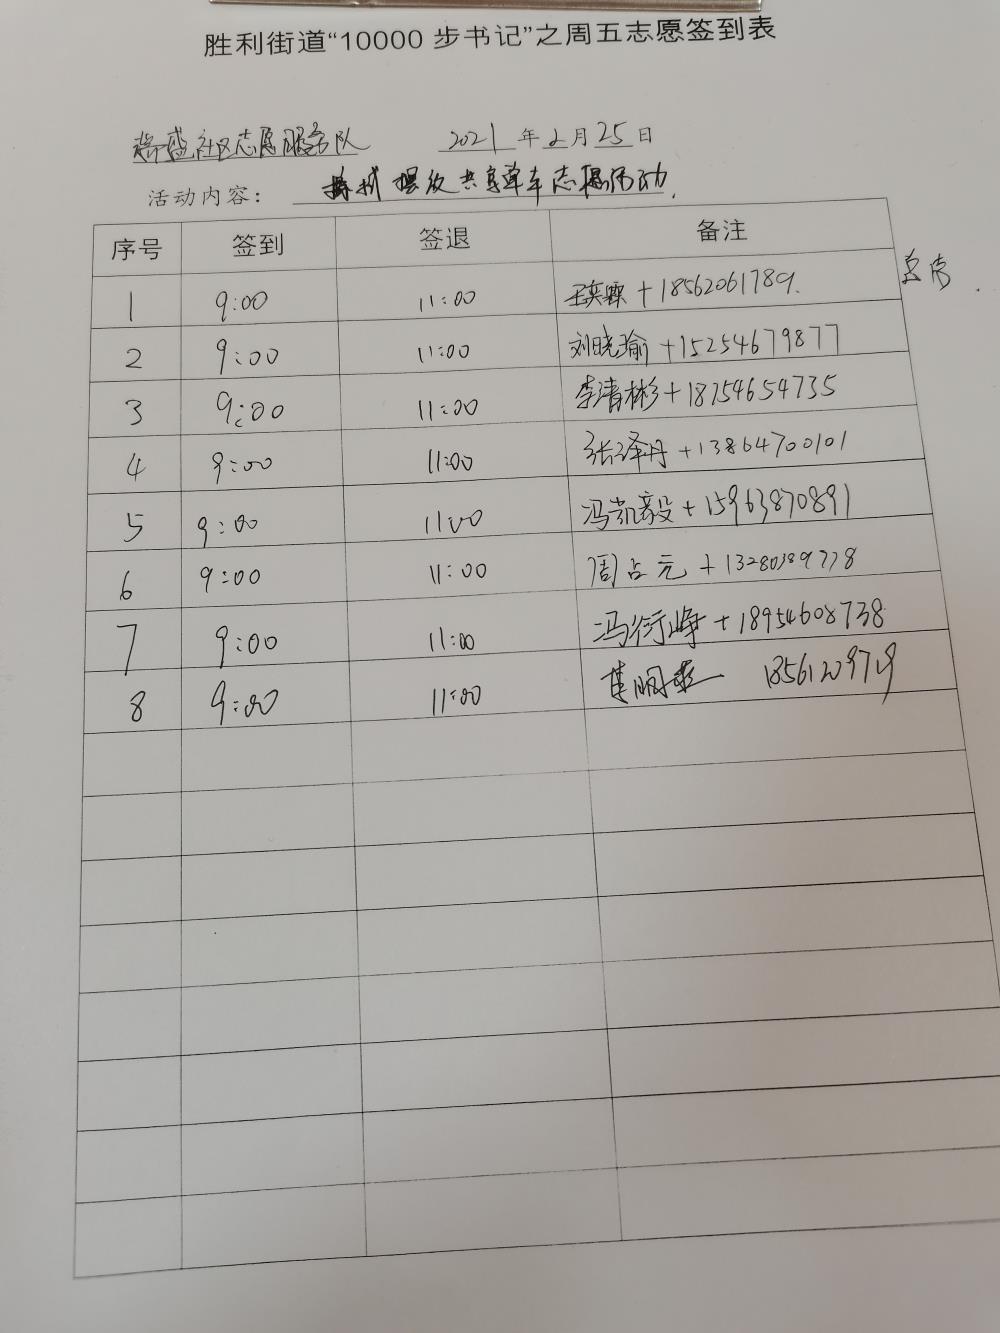 胜利街道“10000步书记”之周五志愿签到表
社区志愿服务队 2021年2月25日
活动内容： 摆放共享单车志愿活动.
序号 签到 签退 备注
1 9:00 11:00 王奕霖+18562061789.
2 9:00 11:00 刘晓瑜+15254679877
3 9:00 11:00 李清彬+18754654735
4 9:00 11:00 张泽丹+13864700101
5 9:00 11:00 冯凯毅+15963870891
6 9:00 11:00 周占元+13280389778
7 9:00 11:00 冯衍峥+18954608738
8 9:00 11:00